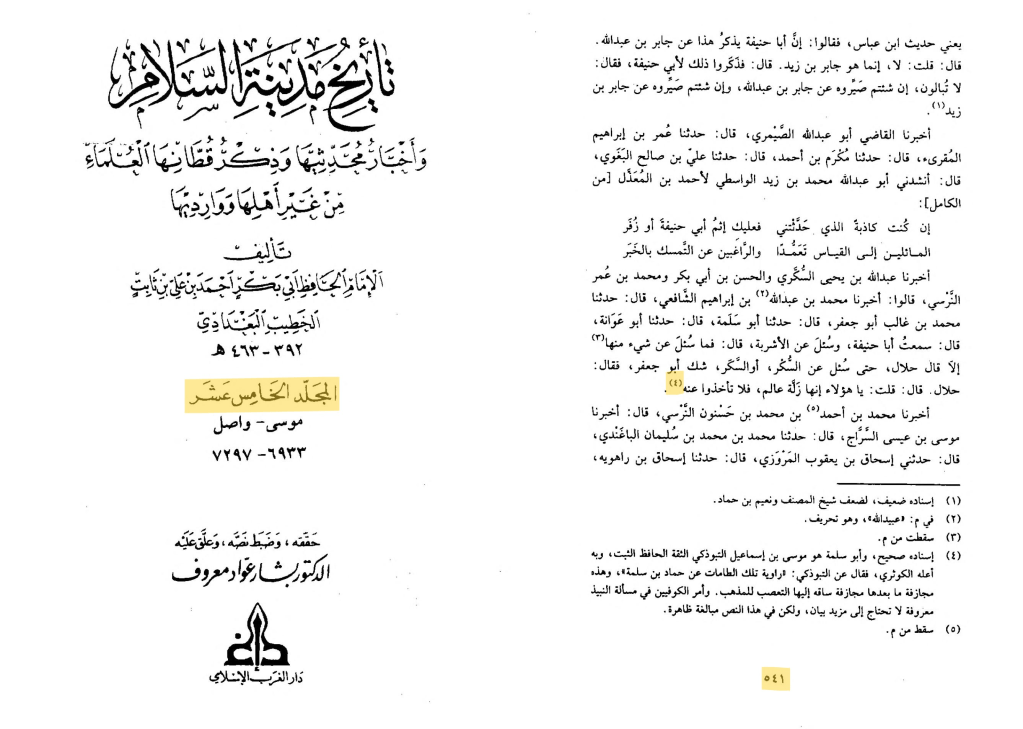 تأريخ مدينة السلام
وأخبار محدثيها وذكر قطانها العلماء
من غير أهلها ووارديها
تأليف
الإمام الحافظ أبي بكر أحمد بن علي بن ثابت
الخطيب البغدادي
٣٩٢ - ٤٦٣ هـ
المجلد الخامس عشر
موسى - واصل
٦٩٣٣ - ٧٢٩٧
حققه، وضبط نصه، وعلق عليه
الدكتور بشار عواد معروف
دار الغرب الإسلامي
يعني حديث ابن عباس، فقالوا: إنَّ أبا حنيفة يذكرُ هذا عن جابر بن عبدالله.
قال: قلت: لا، إنما هو جابر بن زيد. قال: فذَكَروا ذلك لأبي حنيفة، فقال:
لا تُبالون، إن شئتم صَيِّروه عن جابر بن عبدالله، وإن شئتم صَيِّروه عن جابر بن
زيد(١).
أخبرنا القاضي أبو عبدالله الصَّيْمري، قال: حدثنا عُمر بن إبراهيم
المُقرىء، قال: حدثنا مُكْرَم بن أحمد، قال: حدثنا عليّ بن صالح البَغَوي،
قال: أنشدني أبو عبدالله محمد بن زيد الواسطي لأحمد بن المُعَذَّل [من
الكامل]:
إن كُنت كاذبةَ الذي حَدَّثتني فعليك إثمُ أبي حنيفةَ أو زُفَر
المائلين إلى القياس تَعَمُّدًا والرَّاغبين عن التَّمسك بالخَبَر
أخبرنا عبدالله بن يحيى السُّكَّري والحسن بن أبي بكر ومحمد بن عُمر
النَّرْسي، قالوا: أخبرنا محمد بن عبدالله(٢) بن إبراهيم الشَّافعي، قال: حدثنا
محمد بن غالب أبو جعفر، قال: حدثنا أبو سَلَمة، قال: حدثنا أبو عَوَانة،
قال: سمعتُ أبا حنيفة، وسُئلَ عن الأشربة، قال: فما سُئل عن شيء منها(٣)
إلاّ قال حلال، حتى سُئل عن السُّكْر، أوالسَّكَر، شك أبو جعفر، فقال:
حلال. قال: قلت: يا هؤلاء إنها زَلَّة عالم، فلا تأخذوا عنه(٤).
أخبرنا محمد بن أحمد(٥) بن محمد بن حَسْنون النَّرْسي، قال: أخبرنا
موسى بن عيسى السَّرَّاج، قال: حدثنا محمد بن محمد بن سُليمان الباغَنْدي،
قال: حدثني إسحاق بن يعقوب المَرْوَزي، قال: حدثنا إسحاق بن راهويه،
(١) إسناده ضعيف، لضعف شيخ المصنف ونعيم بن حماد.
(٢) في م: «عبيدالله»، وهو تحريف.
(٣) سقطت من م.
(٤) إسناده صحيح، وأبو سلمة هو موسى بن إسماعيل التبوذكي الثقة الحافظ الثبت، وبه
أعله الكوثري، فقال عن التبوذكي: «راوية تلك الطامات عن حماد بن سلمة»، وهذه
مجازفة ما بعدها مجازفة ساقه إليها التعصب للمذهب. وأمر الكوفيين في مسألة النبيذ
معروفة لا تحتاج إلى مزيد بيان، ولكن في هذا النص مبالغة ظاهرة.
(٥) سقط من م.
٥٤١